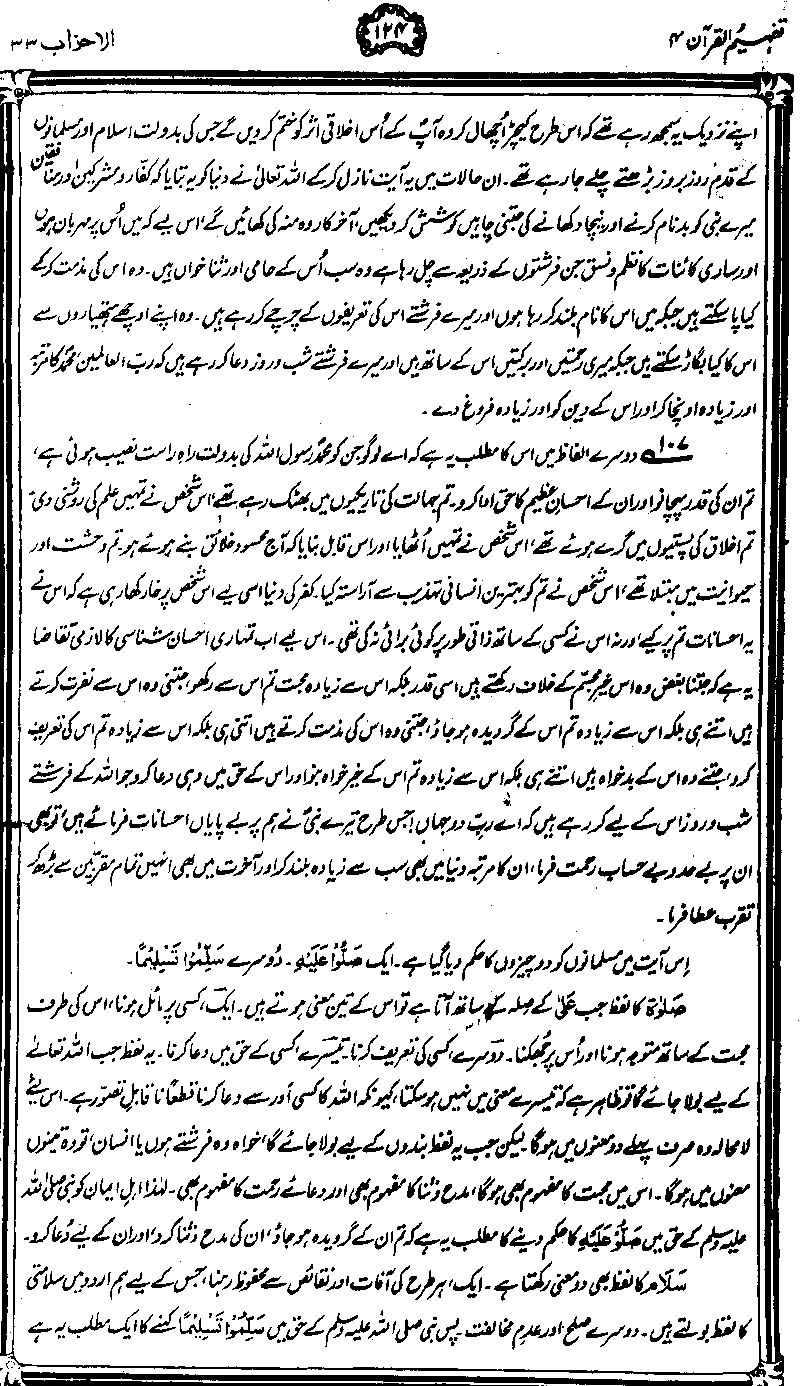 تفہیم القرآن ۴
۱۲۴
الاحزاب ۳۳
اپنے نزدیک یہ سمجھ رہے تھے کہ اس طرح کیچڑ اُچھال کر وہ آپؐ کے اُس اخلاقی اثر کو ختم کر دیں گے جس کی بدولت اسلام اور مسلمانوں
کے قدم روز بروز بڑھتے چلے جا رہے تھے۔ ان حالات میں یہ آیت نازل کر کے اللہ تعالیٰ نے دنیا کو یہ بتایا کہ کفار و مشرکین اور منافقین
میرے نبی کو بدنام کرنے اور نیچا دکھانے کی جتنی چاہیں کوشش کر دیکھیں، آخر کار وہ منہ کی کھائیں گے، اس لیے کہ میں اُس پر مہربان ہوں
اور ساری کائنات کا نظم و نسق جن فرشتوں کے ذریعہ سے چل رہا ہے وہ سب اُس کے حامی اور ثنا خواں ہیں۔ وہ اس کی مذمت کر کے
کیا پا سکتے ہیں جبکہ میں اس کا نام بلند کر رہا ہوں اور میرے فرشتے اس کی تعریفوں کے چرچے کر رہے ہیں۔ وہ اپنے اوچھے ہتھیاروں سے
اس کا کیا بگاڑ سکتے ہیں جبکہ میری رحمتیں اور برکتیں اس کے ساتھ ہیں اور میرے فرشتے شب و روز دعا کر رہے ہیں کہ رب العالمین، محمدؐ کا مرتبہ
اور زیادہ اونچا کر اور اس کے دین کو اور زیادہ فروغ دے۔
۱۰۷ دوسرے الفاظ میں اس کا مطلب یہ ہے کہ اے لوگو جن کو محمدؐ رسول اللہ کی بدولت راہِ راست نصیب ہوئی ہے،
تم ان کی قدر پہچانو اور ان کے احسانِ عظیم کا حق ادا کرو۔ تم جہالت کی تاریکیوں میں بھٹک رہے تھے، اس شخص نے تمہیں علم کی روشنی دی۔
تم اخلاق کی پستیوں میں گرے ہوئے تھے، اس شخص نے تمہیں اُٹھایا اور اس قابل بنایا کہ آج محسودِ خلائق بنے ہوئے ہو۔ تم وحشت اور
حیوانیت میں مبتلا تھے، اس شخص نے تم کو بہترین انسانی تہذیب سے آراستہ کیا۔ کفر کی دنیا اسی لیے اس شخص پر خار کھا رہی ہے کہ اس نے
یہ احسانات تم پر کیے، ورنہ اس نے کسی کے ساتھ ذاتی طور پر کوئی برائی نہ کی تھی۔ اس لیے اب تمہاری احسان شناسی کا لازمی تقاضا
یہ ہے کہ جتنا بغض وہ اس خیرِ مجسم کے خلاف رکھتے ہیں اسی قدر بلکہ اس سے زیادہ محبت تم اس سے رکھو، جتنی وہ اس سے نفرت کرتے
ہیں اتنے ہی بلکہ اس سے زیادہ تم اس کے گرویدہ ہو جاؤ، جتنی وہ اس کی مذمت کرتے ہیں اتنی ہی بلکہ اس سے زیادہ تم اس کی تعریف
کرو، جتنے وہ اس کے بدخواہ ہیں اتنے ہی بلکہ اس سے زیادہ تم اس کے خیر خواہ بنو اور اس کے حق میں وہی دعا کرو جو اللہ کے فرشتے
شب و روز اس کے لیے کر رہے ہیں کہ اے ربِ دو جہاں! جس طرح تیرے نبیؐ نے ہم پر بے پایاں احسانات فرمائے ہیں، تو بھی
ان پر بے حد و بے حساب رحمت فرما، ان کا مرتبہ دنیا میں بھی سب سے زیادہ بلند کر اور آخرت میں بھی انہیں تمام مقربین سے بڑھ کر
تقرب عطا فرما۔
اِس آیت میں مسلمانوں کو دو چیزوں کا حکم دیا گیا ہے۔ ایک صَلُّوْا عَلَيْهِ۔ دُوسرے سَلِّمُوْا تَسْلِيْمًا۔
صَلوٰۃ کا لفظ جب عَلیٰ کے صلہ کے ساتھ آتا ہے تو اس کے تین معنی ہوتے ہیں۔ ایک، کسی پر مائل ہونا، اس کی طرف
محبت کے ساتھ متوجہ ہونا اور اُس پر جھکنا۔ دوسرے، کسی کی تعریف کرنا۔ تیسرے، کسی کے حق میں دعا کرنا۔ یہ لفظ جب اللہ تعالیٰ
کے لیے بولا جائے گا تو ظاہر ہے کہ تیسرے معنی میں نہیں ہو سکتا، کیونکہ اللہ کا کسی اَور سے دعا کرنا قطعاً ناقابلِ تصوّر ہے۔ اس لیے
لامحالہ وہ صرف پہلے دو معنوں میں ہو گا۔ لیکن جب یہ لفظ بندوں کے لیے بولا جائے گا، خواہ وہ فرشتے ہوں یا انسان، تو وہ تینوں
معنوں میں ہو گا۔ اس میں محبت کا مفہوم بھی ہو گا، مدح و ثنا کا مفہوم بھی اور دعائے رحمت کا مفہوم بھی۔ لہٰذا اہلِ ایمان کو نبی صلی اللہ
علیہ وسلم کے حق میں صَلُّوْا عَلَيْهِ کا حکم دینے کا مطلب یہ ہے کہ تم ان کے گرویدہ ہو جاؤ، ان کی مدح و ثنا کرو، اور ان کے لیے دُعا کرو۔
سَلَام کا لفظ بھی دو معنی رکھتا ہے۔ ایک، ہر طرح کی آفات اور نقائص سے محفوظ رہنا، جس کے لیے ہم اردو میں سلامتی
کا لفظ بولتے ہیں۔ دوسرے صلح اور عدمِ مخالفت۔ پس نبی صلی اللہ علیہ وسلم کے حق میں سَلِّمُوْا تَسْلِيْمًا کہنے کا ایک مطلب یہ ہے